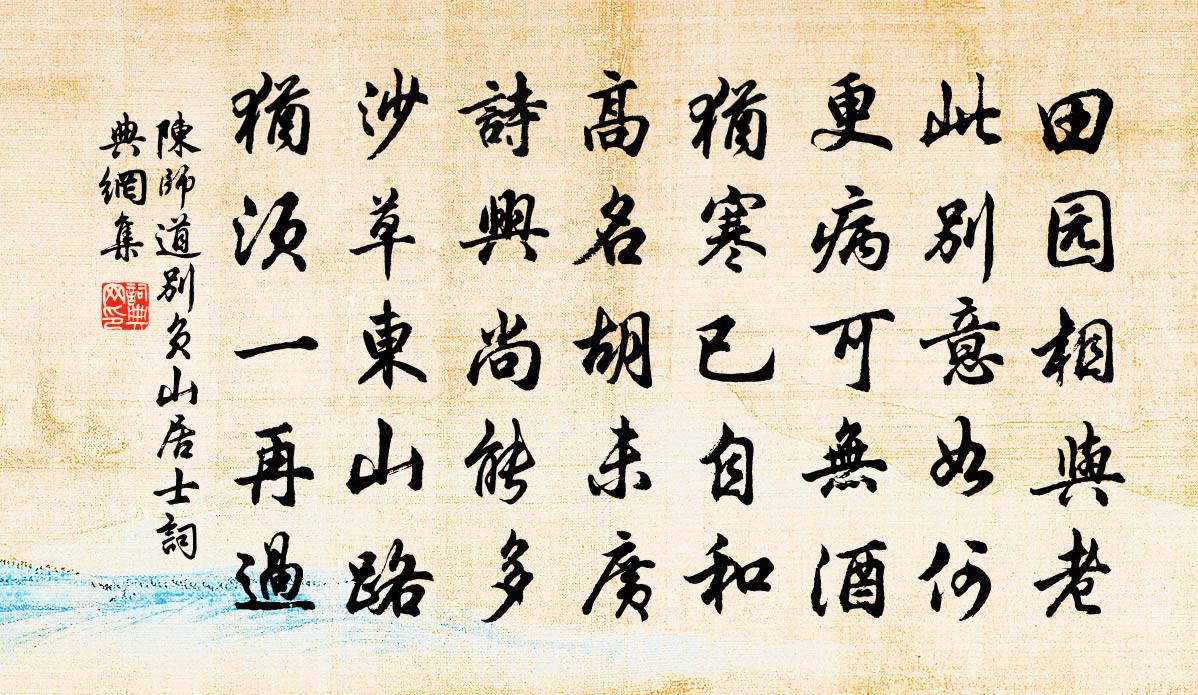 田园相與老
此别意如何
更病可無酒
猶寒已自和
高名胡未廣
詩興尚能多
沙草東山路
猶須一再過
陳師道别負山居士詞
典網集
詞典网印